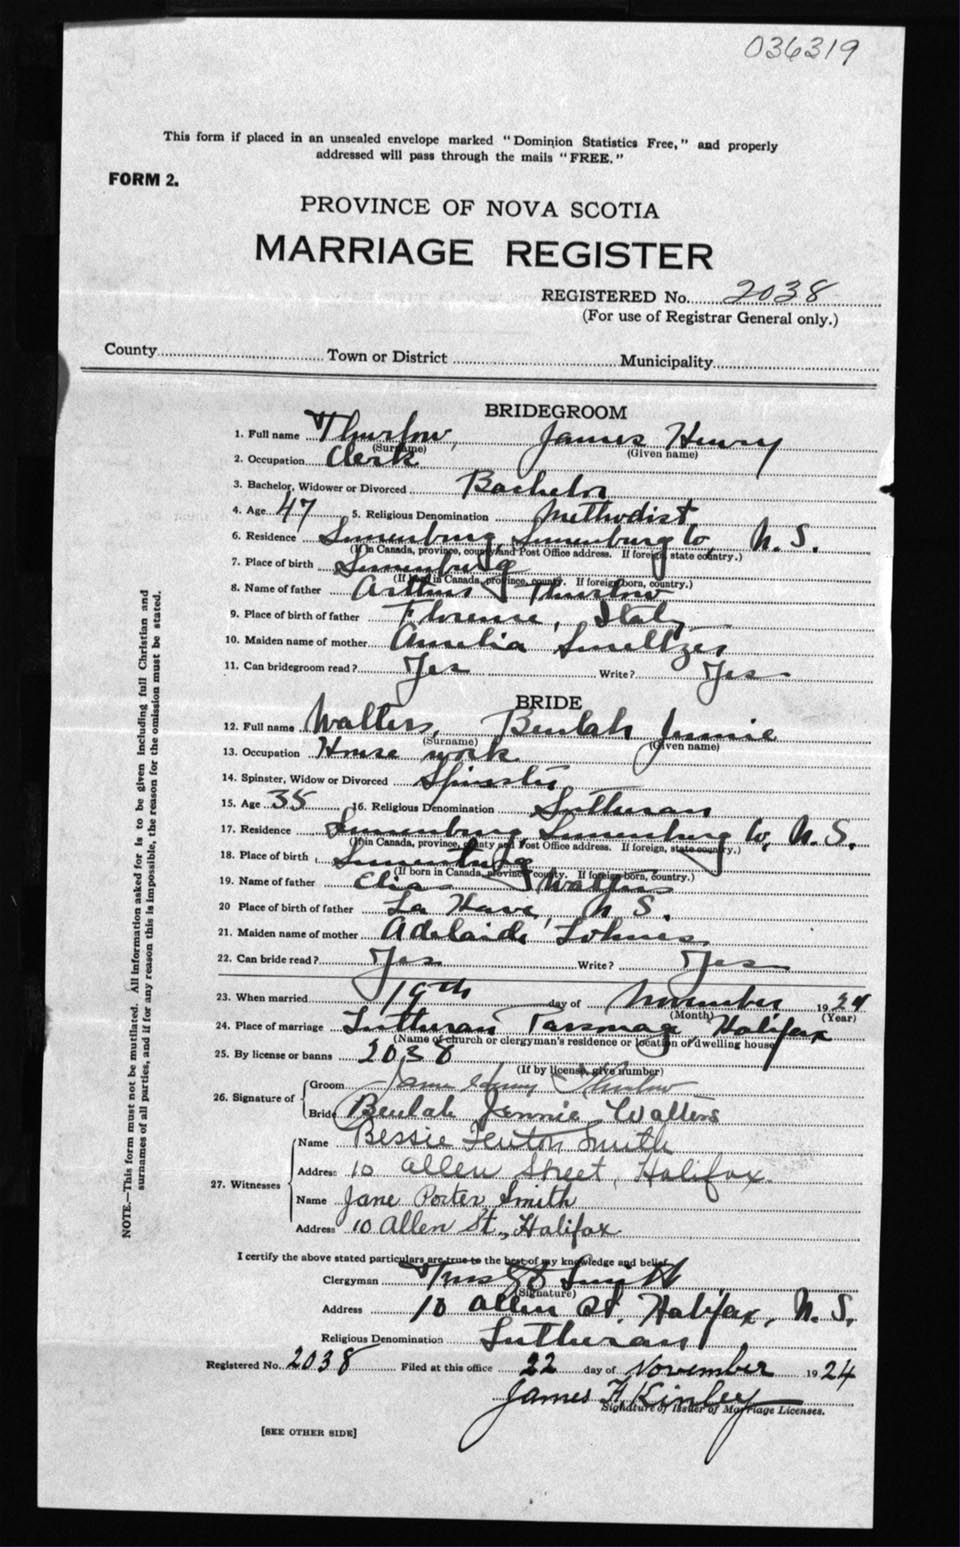 036319
This form if placed in an unsealed envelope marked "Dominion Statistics Free," and properly
addressed will pass through the mails "FREE."
FORM 2.
PROVINCE OF NOVA SCOTIA
MARRIAGE REGISTER
REGISTERED No. 2038
(For use of Registrar General only.)
County Town or District Municipality
BRIDEGROOM
1. Full name Thurlow, James Henry
(Surname) (Given name)
2. Occupation Clerk
3. Bachelor, Widower or Divorced Bachelor
4. Age 47 5. Religious Denomination Methodist
6. Residence Lunenburg, Lunenburg Co, N. S.
(If in Canada, province, county and Post Office address. If foreign, state country.)
7. Place of birth Lunenburg
(If born in Canada, province, county. If foreign born, country.)
8. Name of father Arthur Thurlow
9. Place of birth of father Florence, Italy
10. Maiden name of mother Amelia Smeltzer
11. Can bridegroom read? Yes Write? Yes
BRIDE
12. Full name Walters, Beulah Jennie
(Surname) (Given name)
13. Occupation House work
14. Spinster, Widow or Divorced Spinster
15. Age 35 16. Religious Denomination Lutheran
17. Residence Lunenburg, Lunenburg Co, N. S.
(If in Canada, province, county and Post Office address. If foreign, state country.)
18. Place of birth Lunenburg
(If born in Canada, province, county. If foreign born, country.)
19. Name of father Elias Walters
20 Place of birth of father La Have, N S.
21. Maiden name of mother Adelaide Lohnes
22. Can bride read? Yes Write? Yes
23. When married 19th day of November 1924
(Month) (Year)
24. Place of marriage Lutheran Parsonage, Halifax
(Name of church or clergyman's residence or location of dwelling house)
25. By license or banns 2038
(If by license, give number)
26. Signature of Groom James Henry Thurlow
Bride Beulah Jennie Walters
27. Witnesses Name Bessie Fenton Smith
Address 10 Allen Street, Halifax.
Name Jane Porter Smith
Address 10 Allen St., Halifax
I certify the above stated particulars are true to the best of my knowledge and belief.
Clergyman Smith
(Signature)
Address 10 Allen St. Halifax, N. S.
Religious Denomination Lutheran
Registered No. 2038 Filed at this office 22 day of November 1924
James H Kinley
Signature of Issuer of Marriage Licenses.
[SEE OTHER SIDE]
NOTE.—This form must not be mutilated. All information asked for is to be given including full Christian and
surnames of all parties, and if for any reason this is impossible, the reason for the omission must be stated.